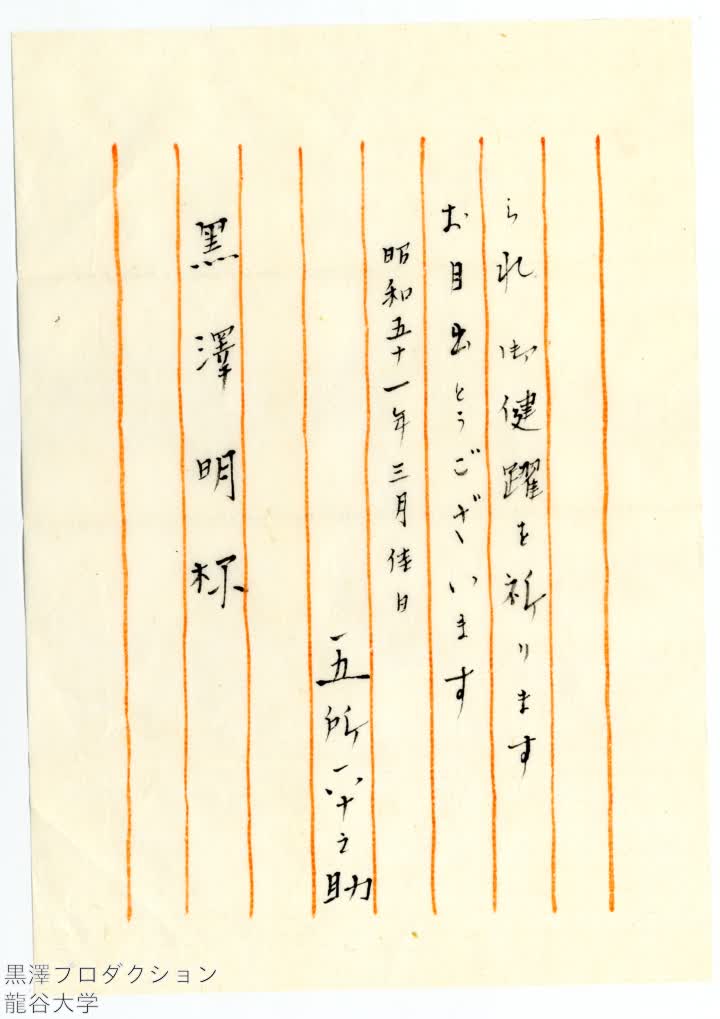 られ 御健躍を祈ります
お目出とうございます
昭和五十一年三月佳日
五所平之助
黒澤明様
黒澤プロダクション
龍谷大学